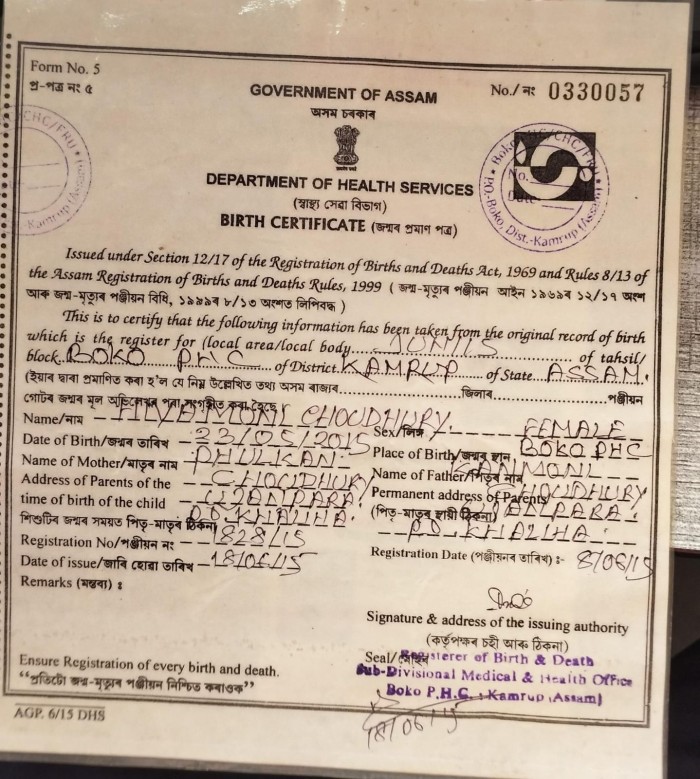 Form No. 5
প্ৰ-পত্ৰ নং ৫
No./ নং 0330057
GOVERNMENT OF ASSAM
অসম চৰকাৰ
DEPARTMENT OF HEALTH SERVICES
(স্বাস্থ্য সেৱা বিভাগ)
BIRTH CERTIFICATE (জন্মৰ প্ৰমাণ পত্ৰ)
Issued under Section 12/17 of the Registration of Births and Deaths Act, 1969 and Rules 8/13 of
the Assam Registration of Births and Deaths Rules, 1999 ( জন্ম-মৃত্যুৰ পঞ্জীয়ন আইন ১৯৬৯ৰ ১২/১৭ অংশ
আৰু জন্ম-মৃত্যুৰ পঞ্জীয়ন বিধি, ১৯৯৯ৰ ৮/১৩ অংশত লিপিবদ্ধ )
This is to certify that the following information has been taken from the original record of birth
which is the register for (local area/local body of tahsil/
block BOKO PHC of District KAMRUP of State ASSAM.
(ইয়াৰ দ্বাৰা প্ৰমাণিত কৰা হ'ল যে নিম্ন উল্লেখিত তথ্য অসম ৰাজ্যৰ জিলাৰ পঞ্জীয়ন
গোটৰ জন্মৰ মূল
Name/নাম CHOUDHURY. Sex/লিঙ্গ FEMALE
Date of Birth/জন্মৰ তাৰিখ 23/05/2015 Place of Birth/জন্মৰ স্থান BOKO PHC
Name of Mother/মাতৃৰ নাম PHULKAN Name of Father/পিতৃৰ নাম KANMONI
Address of Parents of the CHOUDHURY Permanent address of Parents CHOUDHURY
time of birth of the child (পিতৃ-মাতৃৰ স্থায়ী ঠিকনা)
শিশুটিৰ জন্মৰ সময়ত পিতৃ-মাতৃৰ ঠিকনা
Registration No/পঞ্জীয়ন নং 1828/15
Registration Date (পঞ্জীয়নৰ তাৰিখ) :- 8/06/15
Date of issue/জাৰি হোৱা তাৰিখ 18/06/15
Remarks (মন্তব্য) :
Signature & address of the issuing authority
(কৰ্তৃপক্ষৰ চহী আৰু ঠিকনা)
Seal/ Registerer of Birth & Death
Sub-Divisional Medical & Health Office
Boko P.H.C. : Kamrup (Assam)
18/06/15
Ensure Registration of every birth and death.
“প্ৰতিটো জন্ম-মৃত্যুৰ পঞ্জীয়ন নিশ্চিত কৰাওক”
AGP. 6/15 DHS